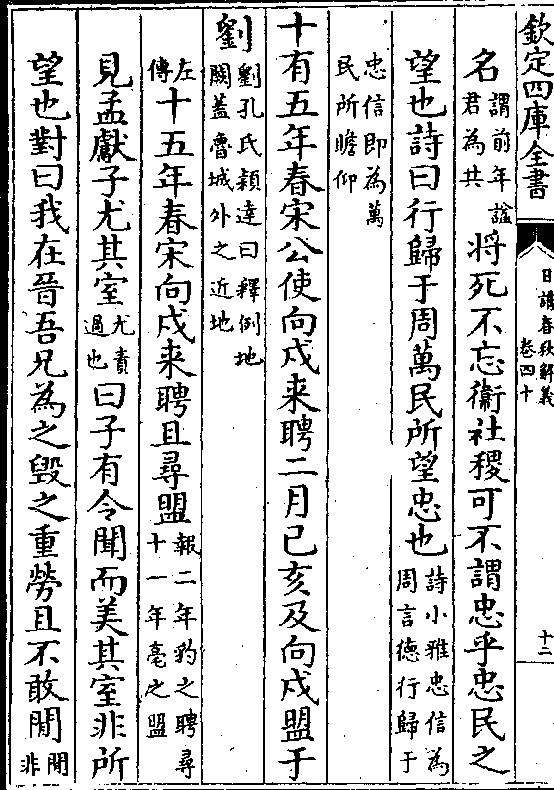 欽定四庫全書
日講春秋解義
卷四十
十二
名謂前年諡君為共將死不忘衞社稷可不謂忠乎忠民之
望也詩曰行歸于周萬民所望忠也詩小雅忠信為周言德行歸于
忠信即為萬民所瞻仰
十有五年春宋公使向戌来聘二月己亥及向戌盟于
劉劉孔氏頴達曰釋例地闕蓋魯城外之近地
左傳十五年春宋向戌来聘且尋盟報二年豹之聘尋十一年亳之盟
見孟獻子尤其室尤責過也曰子有令聞而美其室非所
望也對曰我在晉吾兄為之毁之重勞且不敢閒閒非